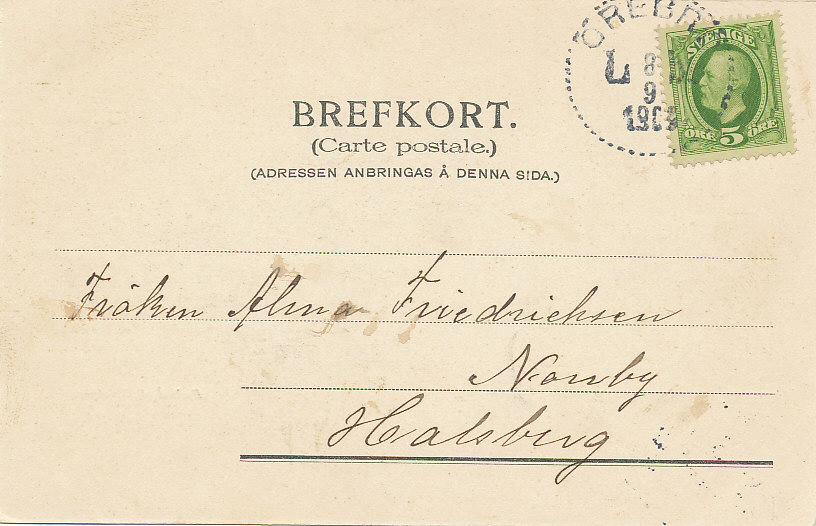 ÖREBRO
SVERIGE
L
8
9
ÖRE 5 ÖRE
BREFKORT.
(Carte postale.)
(ADRESSEN ANBRINGAS Å DENNA SIDA.)
Fröken Alma Friedrichsen
Norrby
Halsberg